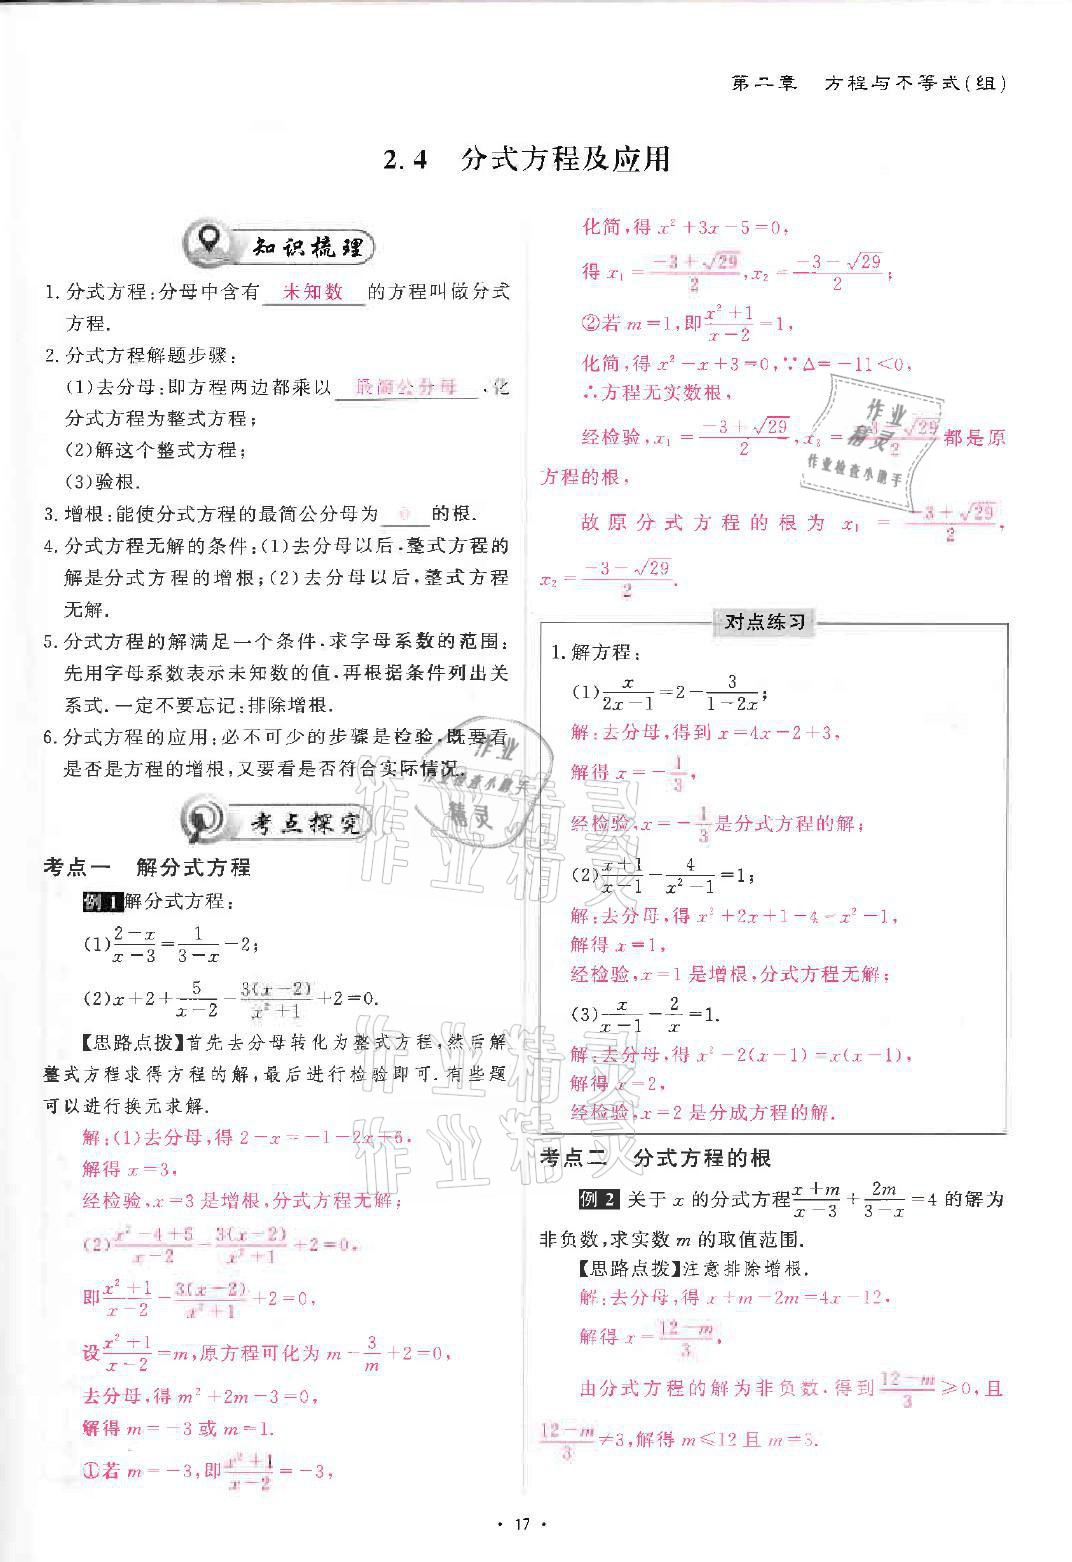 第二章 方程与不等式(组)
2.4 分式方程及应用
知识梳理
1. 分式方程:分母中含有 未知数 的方程叫做分式
方程.
2. 分式方程解题步骤:
(1)去分母:即方程两边都乘以 最简公分母 ,化
分式方程为整式方程;
(2)解这个整式方程;
(3)验根.
3. 增根:能使分式方程的最简公分母为 0 的根.
4. 分式方程无解的条件:(1)去分母以后,整式方程的
解是分式方程的增根;(2)去分母以后,整式方程
无解.
5. 分式方程的解满足一个条件,求字母系数的范围:
先用字母系数表示未知数的值,再根据条件列出关
系式.一定不要忘记:排除增根.
6. 分式方程的应用:必不可少的步骤是检验,既要看
是否是方程的增根,又要看是否符合实际情况.
考点探究
考点一 解分式方程
例1 解分式方程:
(1) (2-x)/(x-3) = 1/(3-x) - 2;
(2) x+2+5/(x-2) - 3(x-2)/(x²+1) +2=0.
【思路点拨】首先去分母转化为整式方程,然后解
整式方程求得方程的解,最后进行检验即可.有些题
可以进行换元求解.
解:(1)去分母,得 2-x=-1-2x+6,
解得 x=3,
经检验,x=3是增根,分式方程无解;
(2) (x²-4+5)/(x-2) - 3(x-2)/(x²+1) +2=0,
即 (x²+1)/(x-2) - 3(x-2)/(x²+1) +2=0,
设 (x²+1)/(x-2) =m,原方程可化为 m - 3/m +2=0,
去分母,得 m²+2m-3=0,
解得 m=-3或m=1.
①若 m=-3,即 (x²+1)/(x-2) =-3,
化简,得 x²+3x-5=0,
得 x₁= (-3+√29)/2 ,x₂= (-3-√29)/2 ;
②若 m=1,即 (x²+1)/(x-2) =1,
化简,得 x²-x+3=0,∵Δ=-11<0,
∴方程无实数根,
经检验,x₁= (-3+√29)/2 ,x₂= (-3-√29)/2 都是原
方程的根,
故原分式方程的根为 x₁ = (-3+√29)/2 ,
x₂= (-3-√29)/2 .
对点练习
1. 解方程:
(1) x/(2x-1) =2- 3/(1-2x) ;
解:去分母,得到 x=4x-2+3,
解得 x=- 1/3 ,
经检验,x=- 1/3 是分式方程的解;
(2) (x+1)/(x-1) - 4/(x²-1) =1;
解:去分母,得 x²+2x+1-4=x²-1,
解得 x=1,
经检验,x=1是增根,分式方程无解;
(3) x/(x-1) - 2/x =1.
解:去分母,得 x²-2(x-1)=x(x-1),
解得 x=2,
经检验,x=2是分成方程的解.
考点二 分式方程的根
例2 关于 x 的分式方程 (x+m)/(x-3) + 2m/(3-x) =4 的解为
非负数,求实数 m 的取值范围.
【思路点拨】注意排除增根.
解:去分母,得 x+m-2m=4x-12,
解得 x= (12-m)/3 ,
由分式方程的解为非负数,得到 (12-m)/3 ≥0,且
(12-m)/3 ≠3,解得 m≤12且 m=3.
· 17 ·
作业精灵
作业检查小助手
作业精灵
作业检查小助手
作业精灵
作业精灵
作业精灵
作业精灵